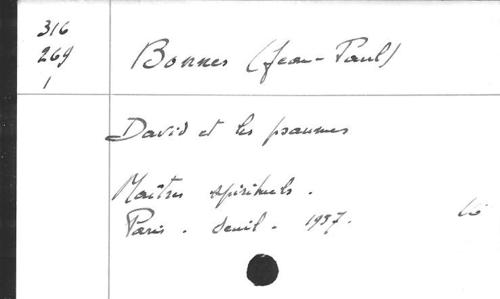 316
269
1
Bonnes (Jean-Paul)
David et les psaumes
Maîtres spirituels.
Paris. Seuil. 1957.
16